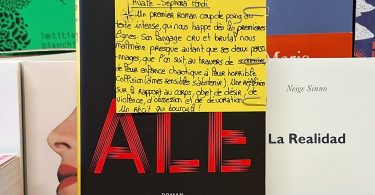 Avale - Séphora Pondi
Un premier roman coup de poing au
texte intense, qui nous happe dès les premières
lignes. Son langage cru et brutal nous
malmène presque autant que ses deux person-
nages, que l'on suit, au travers de
de leur enfance chaotique à leur horrible
collision (âmes sensibles s'abstenir). Une réflexion
sur le rapport au corps, objet de désir, de
violence, d'obsession et de dévoration.
Un récit qui bouscule !
ALE
ROMAN
laetitia
blanch
Marie
Neige Sinno
La Realidad